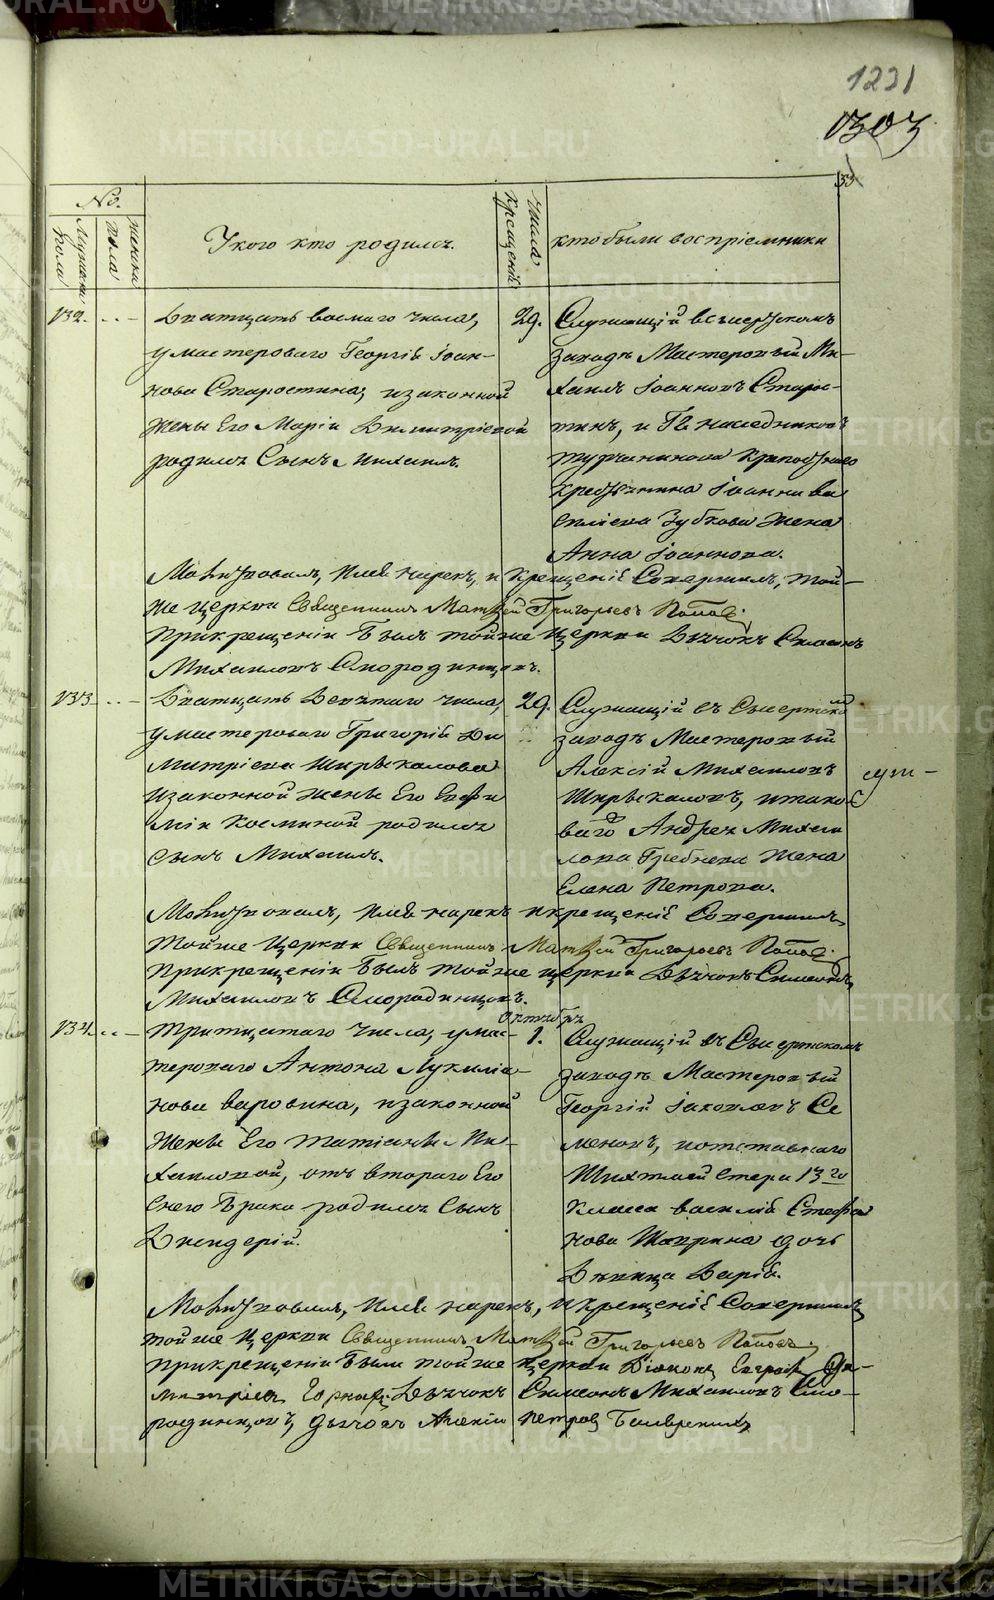 1221
1303
33
No.
Мужеска пола
женска пола
У кого кто родилъ.
Числа крещенія
кто были воспріемники
132.
Дватцать восмаго числа,
у мастероваго Георгія Іоан-
нова Старостина, и законной
жены Его Маріи Димитріевой
родился Сынъ Михаилъ.
29.
Служащій въ Сысертскомъ
заводѣ Мастеровый Ми-
хаилъ Іоанновъ Старос-
тинъ, и Гг. наследниковъ
Турчанинова
крестьянина Іоанна Ва
силіева Зубкова жена
Анна Іоаннова.
Молитвовалъ, имя нарекъ, и крещеніе Совершилъ, той-
же церкви Священникъ Матѳей Григорьевъ Поповъ.
При крещеніи былъ тойже церкви Дьячокъ Симеонъ
Михаиловъ Смородинцовъ.
133
Дватцать Девятаго числа,
у мастероваго Григорія Ди
митріева Ширыкалова
и законной жены Его Евфи
міи Косминой родился
сынъ Михаилъ.
29.
Служащій въ Сысертском
заводѣ Мастеровый
Алексій Михаиловъ
Ширыкаловъ, и таков
ваго Андрея Михаи
лова Гребнева жена
Елена Петрова.
Молитвовалъ, имя нарекъ и крещеніе Совершилъ
тойже церкви Священникъ Матѳей Григорьевъ Поповъ.
При крещеніи былъ тойже церкви Дьячокъ Симеонъ
Михаиловъ Смородинцовъ.
134.
Тритцатаго числа, у мас-
тероваго Антона Лукиліа-
нова Варовина, и законной
жены Его Татіаны Ми-
хаиловой, отъ втораго Его
Сынъ
Октябрь
1.
Служащій въ Сысертскомъ
заводѣ Мастеровый
Георгій Іаковлевъ Се
меновъ, и отставнаго
Шихтмейстера 13го
класса Василія Стефа
нова дочь
Дѣвица Дарія.
Молитвовалъ, имя нарекъ, и крещеніе Совершилъ
тойже церкви Священникъ Матѳей Григорьевъ Поповъ,
При крещеніи были тойже церкви Діаконъ
Дьячокъ Симеонъ Михаиловъ Смо-
родинцовъ, Петровъ